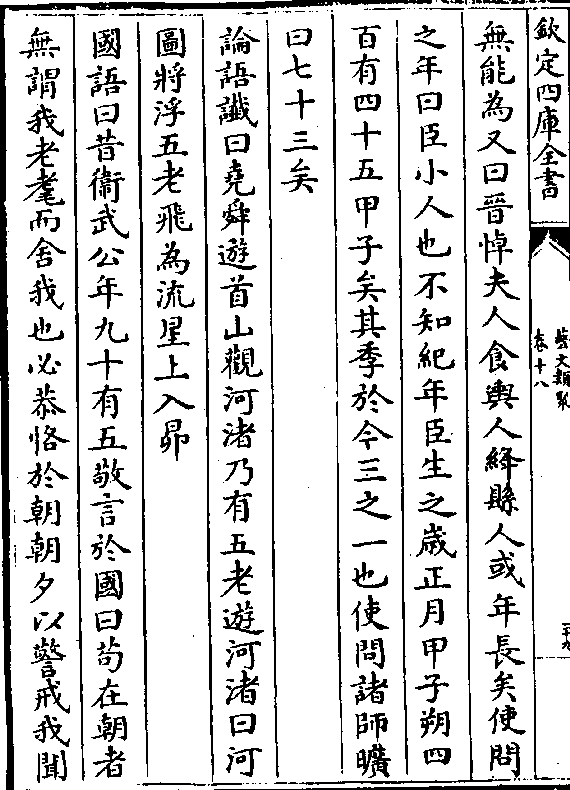 欽定四庫全書
藝文類聚
卷十八
無能為又曰晉悼夫人食輿人絳縣人或年長矣使問
之年曰臣小人也不知紀年臣生之歲正月甲子朔四
百有四十五甲子矣其季於今三之一也使問諸師曠
曰七十三矣
論語讖曰堯舜遊首山觀河渚乃有五老遊河渚曰河
圖將浮五老飛為流星上入昴
國語曰昔衞武公年九十有五敬言於國曰苟在朝者
無謂我老耄而舍我也必恭恪於朝朝夕以警戒我聞